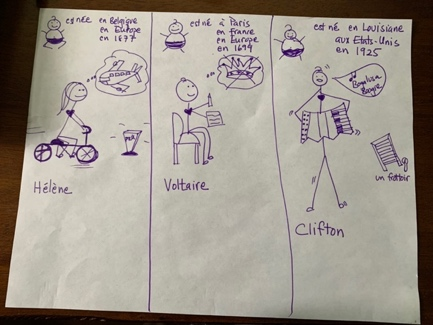 est née en Belgique
en Europe
en 1977
Hélène
est né à Paris
en France
en Europe
en 1694
Voltaire
est né en Louisiane
aux Etats-Unis
en 1925
Bogalusa
Boogie
un frottoir
Clifton